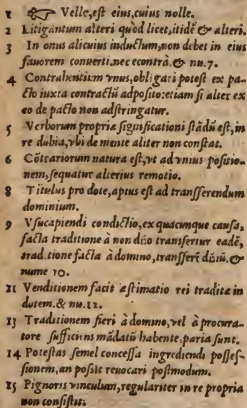 1 ☞ Velle, est eius, cuius nolle.
2 Litigantum alteri quod licet, itidẽ & alteri.
3 In onus alicuius inductum, non debet in eius
fauorem conuerti, nec econtrà. & nu. 7.
4 Contrahentium vnus, obligari potest ex pa-
cto iuxta contractũ adposito: etiam si alter ex
eo de pacto non adstringatur.
5 Verborum propria significationi stãdũ est, in
re dubia, vbi de mente aliter non constat.
6 Cõtrariorum natura est, vt ad vnius positio-
nem, sequatur alterius remotio.
8 Titulus pro dote, aptus est ad transferendum
dominium.
9 Vsucapiendi condictio, ex quacunque causa,
facta traditione à non dño transfertur eadẽ,
trad.tione facta à domino, transferẽ dñiũ. &
nume 10.
11 Venditionem facit æstimatio rei traditæ in
dotem. & nu. 12.
13 Traditionem fieri à domino, vel à procura-
tore sufficiens mãdatũ habente, paria sunt.
14 Potestas semel concessa ingrediendi posses-
sionem, an possit reuocari postmodum.
15 Pignoris vinculum, regulariter in re propria
non consistit.